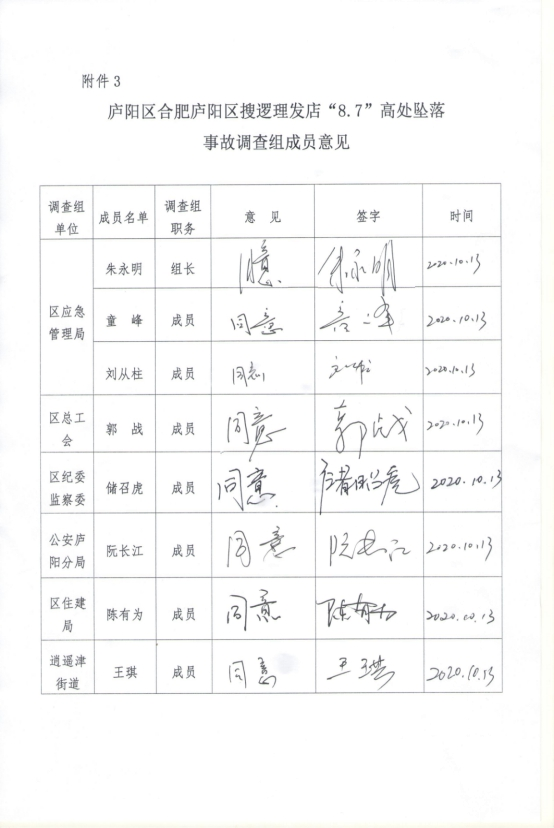 附件 3
庐阳区合肥庐阳区搜逻理发店“8.7”高处坠落
事故调查组成员意见
调查组单位 成员名单 调查组职务 意 见 签字 时间
区应急管理局 朱永明 组长 同意 朱永明 2020.10.13
童 峰 成员 同意 童峰 2020.10.13
刘从柱 成员 同意 2020.10.13
区总工会 郭 战 成员 同意 郭战 2020.10.13
区纪委监察委 储召虎 成员 同意 储召虎 2020.10.13
公安庐阳分局 阮长江 成员 同意 阮长江 2020.10.13
区住建局 陈有为 成员 同意 陈有为 2020.10.13
逍遥津街道 王琪 成员 同意 王琪 2020.10.13